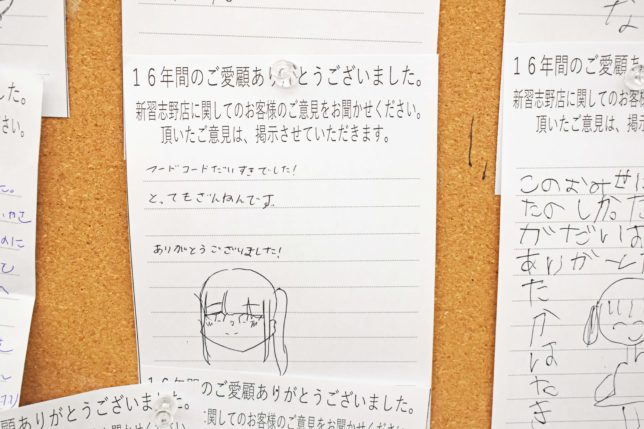 16年間のご愛顧ありがとうございました。
新習志野店に関してのお客様のご意見をお聞かせください。
頂いたご意見は、掲示させていただきます。
フードコードだいすきでした!
と、てもざんねんです。
ありがとうございました!
16年間のご愛顧ありがとうございました。
に関してのお客様のご意見をお聞かせください。
16年間のご愛顧あ
新習志野店に関してのお客様の
頂いたご意見は、掲示
このおみせは
たのしか。た
がだいは
ありがーと
た
か
は
た
き
な
た。
さい。
顧ありがとうございました。